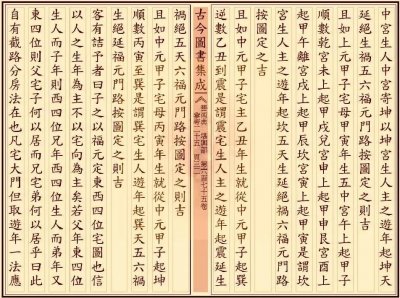 中宮生人中宮寄坤以坤宮生人主之遊年起坤天
延絕生禍五六福元門路按圖定之則吉
且如上元甲子宅母丙寅年生五中宮午上起甲子
順數乾宮未上起甲戌兌宮申上起甲申艮宮酉上
起甲午離宮戌上起甲辰坎宮亥上起甲寅是謂坎
宮生人主之遊年起坎五天生延絕禍六六福元門路
按圖定之吉
且如中元甲子宅主乙丑年生就從中元甲子起巽
逆數乙丑到震是謂震宮生人主之遊年起震延生
古今圖書集成
藝術典 堪輿部 第六百七十五卷
禍絕五天六福元門路按圖定之則吉
且如中元甲子宅母丙寅年生就從中元甲子起坤
順數丙寅至巽是謂巽宮生人遊年起巽天五六禍
生絕延福元門路按圖定之則吉
客有詰予者曰子之以福元定東西四位宅圖也信
以人之生年為主不以宅向為主矣若父年東四位
生人而子年則西四位兄年西四位生人而弟年又
東四位則父宅子何以居而兄宅弟何以居乎曰此
自有截路分房法在也凡宅大門但取遊年一法應